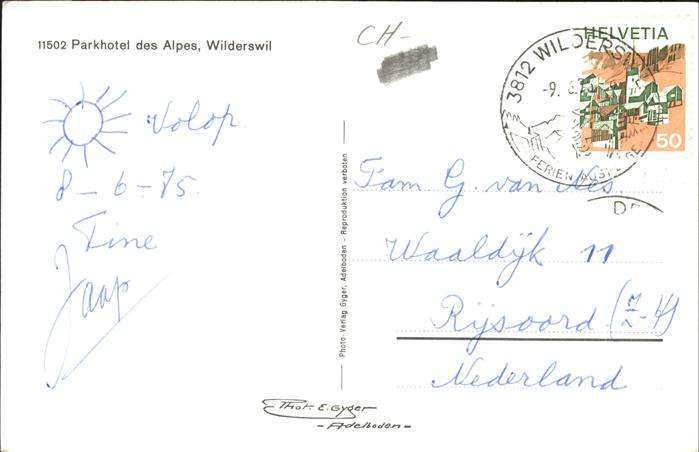 11502 Parkhotel des Alpes, Wilderswil
CH-
HELVETIA
50
3812 WILDERSWIL
-9. 6.
FERIEN
Volop
8-6-75
Tine
Jaap
Fam G. van Nes.
Waaldijk 11
Rijsoord (Z-H)
Nederland
Photo-Verlag Gyger, Adelboden - Reproduktion verboten
Phot. E. Gyger
-Adelboden-